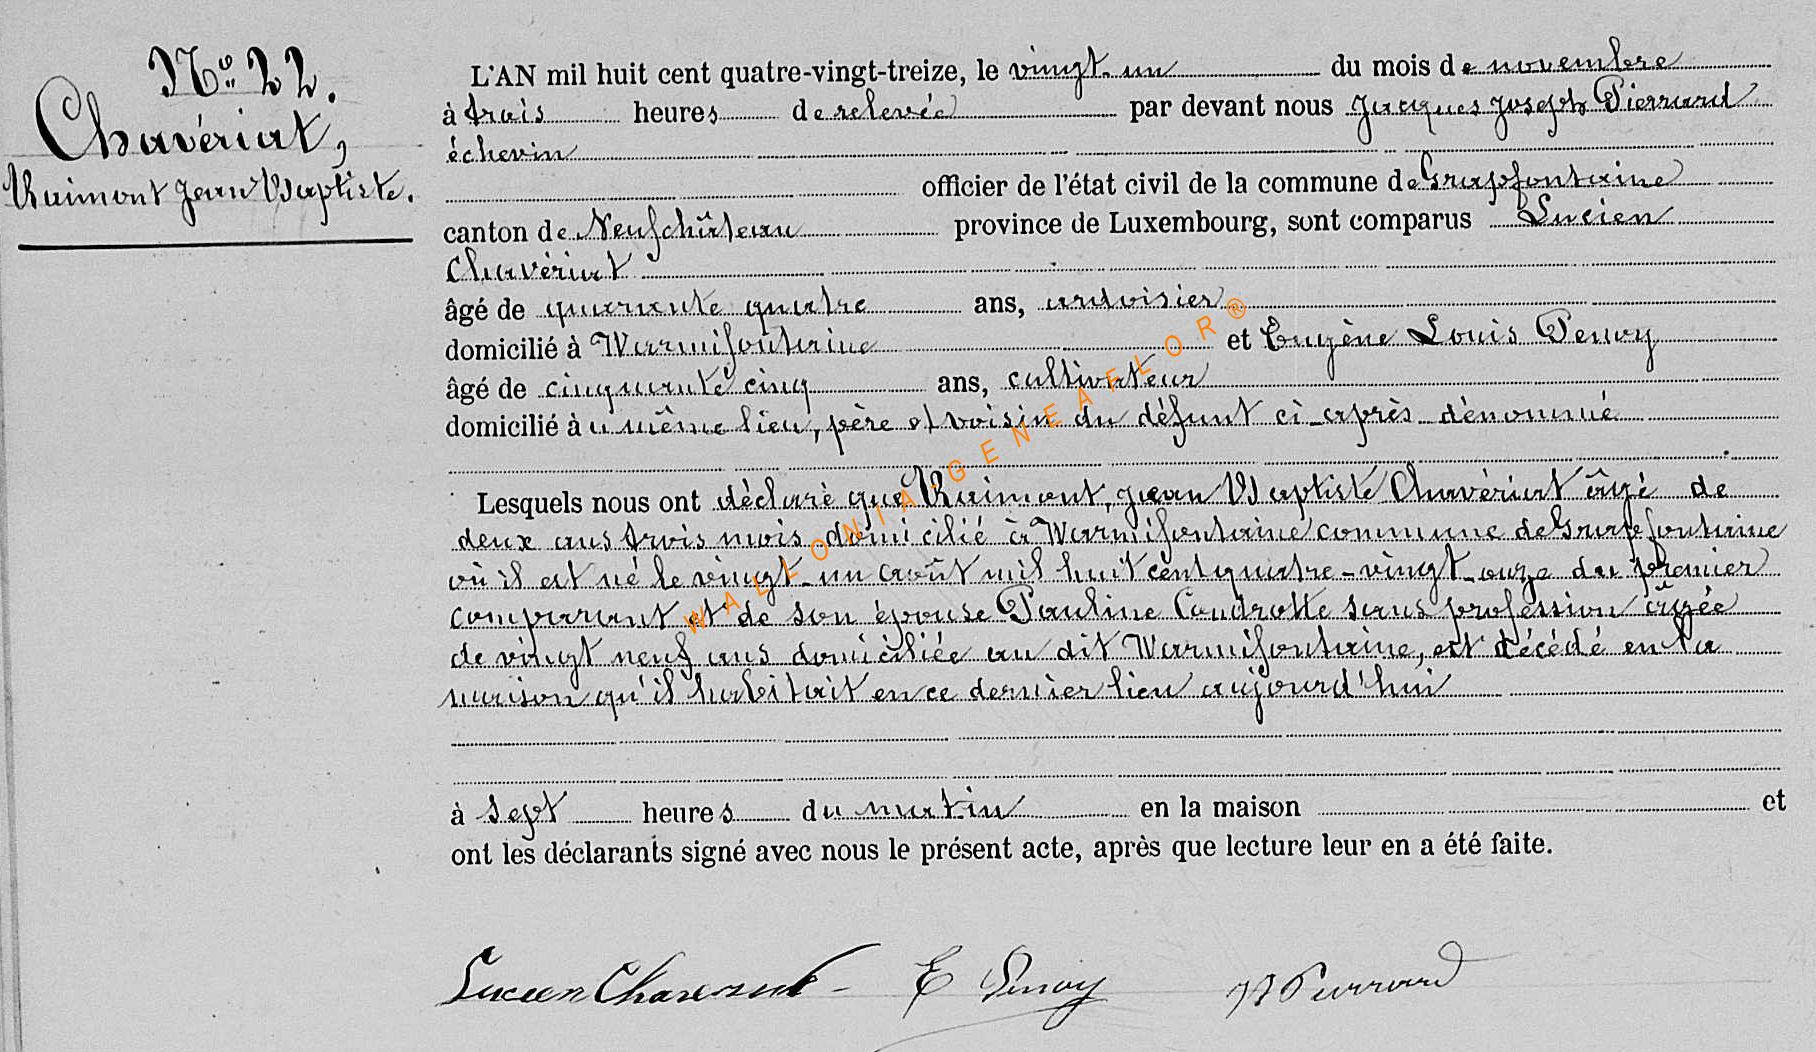 No. 22.
Chavériat,
Raimont Jean Baptiste.
L'AN mil huit cent quatre-vingt-treize, le vingt-un du mois de novembre
à trois heures de relevée par devant nous Jacques Joseph Pierrard
échevin
officier de l'état civil de la commune de Grapfontaine
canton de Neufchâteau province de Luxembourg, sont comparus Lucien
Chavériat
âgé de quarante quatre ans, ardoisier
domicilié à Warmifontaine et Eugène Louis Penoy
âgé de cinquante cinq ans, cultivateur
domicilié à u même lieu, père et voisin du défunt ci-après dénommé
Lesquels nous ont déclaré que Raimont, Jean Baptiste Chavériat âgé de
deux ans trois mois domicilié à Warmifontaine commune de Grapfontaine
où il est né le vingt-un août mil huit cent quatre-vingt-onze du premier
comparant et de son épouse Pauline Candrotte sans profession âgée
de vingt neuf ans domiciliée au dit Warmifontaine, est décédé en la
maison qu'il habitait en ce dernier lieu aujourd'hui
à sept heures du matin en la maison et
ont les déclarants signé avec nous le présent acte, après que lecture leur en a été faite.
Lucien Chaveriat E Penoy JJ Pierrard
WALLONIA-GENEAFLOR®